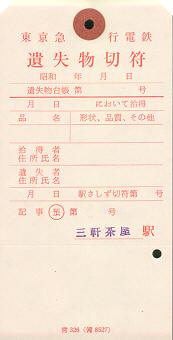 東京急行電鉄
遺失物切符
昭和 年 月 日
遺失物台帳 第 号
月 日 において拾得
品名 形状、品質、その他
拾得者
住所氏名
遺失者
住所氏名
月 日 駅さしず切符第 号
記事 第 号
三軒茶屋 駅
営326(備8527)